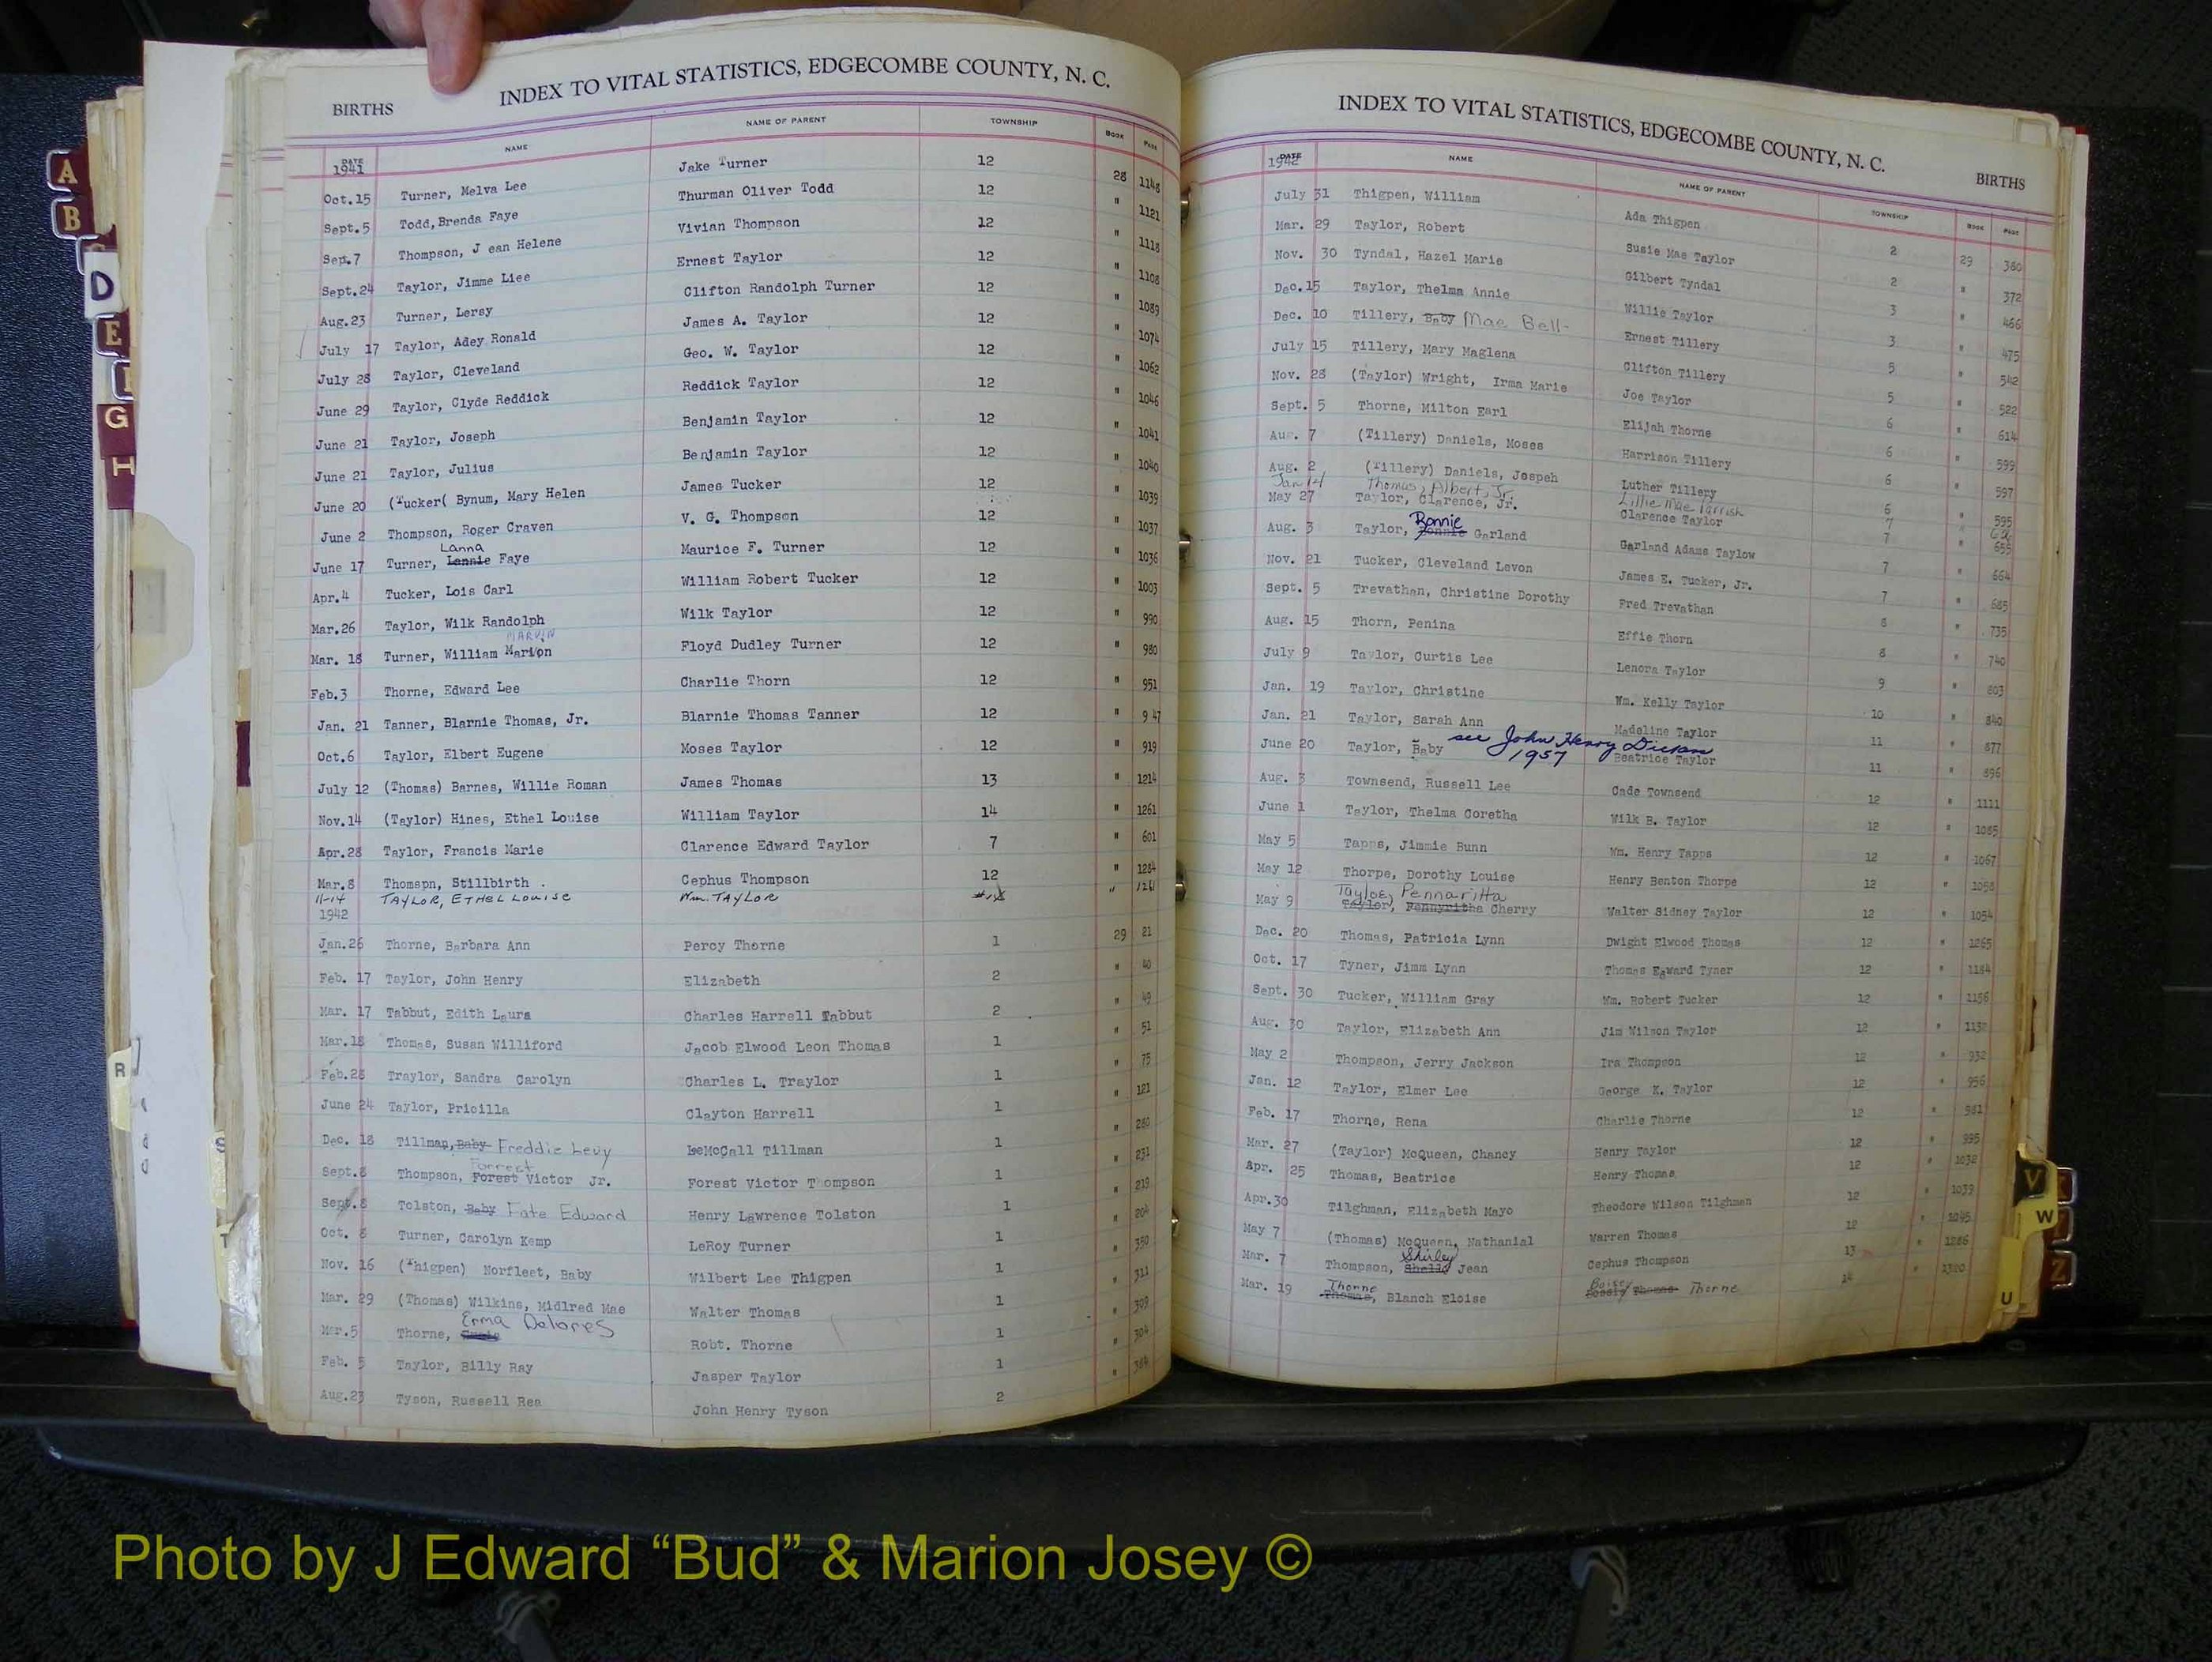 BIRTHS INDEX TO VITAL STATISTICS, EDGECOMBE COUNTY, N. C.
DATE NAME NAME OF PARENT TOWNSHIP BOOK PAGE
1941
Oct.15 Turner, Melva Lee Jake Turner 12 28 1148
Sept.5 Todd,Brenda Faye Thurman Oliver Todd 12 " 1121
Sep.7 Thompson, J ean Helene Vivian Thompson 12 " 1118
Sept.24 Taylor, Jimme Liee Ernest Taylor 12 " 1108
Aug.23 Turner, Leroy Clifton Randolph Turner 12 " 1089
July 17 Taylor, Adey Ronald James A. Taylor 12 " 1074
July 28 Taylor, Cleveland Geo. W. Taylor 12 " 1062
June 29 Taylor, Clyde Reddick Reddick Taylor 12 " 1046
June 21 Taylor, Joseph Benjamin Taylor 12 " 1041
June 21 Taylor, Julius Benjamin Taylor 12 " 1040
June 20 (Tucker( Bynum, Mary Helen James Tucker 12 " 1039
June 2 Thompson, Roger Craven V. G. Thompson 12 " 1037
Lanna
June 17 Turner, Lannie Faye Maurice F. Turner 12 " 1036
Apr.4 Tucker, Lois Carl William Robert Tucker 12 " 1003
Mar.26 Taylor, Wilk Randolph Wilk Taylor 12 " 990
MARVIN
Mar. 18 Turner, William Marion Floyd Dudley Turner 12 " 980
Feb.3 Thorne, Edward Lee Charlie Thorn 12 " 951
Jan. 21 Tanner, Blarnie Thomas, Jr. Blarnie Thomas Tanner 12 " 9 47
Oct.6 Taylor, Elbert Eugene Moses Taylor 12 " 919
July 12 (Thomas) Barnes, Willie Roman James Thomas 13 " 1214
Nov.14 (Taylor) Hines, Ethel Louise William Taylor 14 " 1261
Apr.28 Taylor, Francis Marie Clarence Edward Taylor 7 " 601
Mar.8 Thomspn, Stillbirth . Cephus Thompson 12 " 1284
11-14 TAYLOR, ETHEL LOUISE Wm. TAYLOR " 1261
1942
Jan.26 Thorne, Barbara Ann Percy Thorne 1 29 21
Feb. 17 Taylor, John Henry Elizabeth 2 " 40
Mar. 17 Tabbut, Edith Laura Charles Harrell Tabbut 2 " 49
Mar.18 Thomas, Susan Williford Jacob Elwood Leon Thomas 1 " 51
Feb.28 Traylor, Sandra Carolyn Charles L. Traylor 1 " 75
June 24 Taylor, Pricilla Clayton Harrell 1 " 121
Dec. 18 Tillman, Baby Freddie Levy LeMcCall Tillman 1 " 280
Forrest
Sept.8 Thompson, Forest Victor Jr. Forest Victor Thompson 1 " 231
Sept.8 Tolston, Baby Fate Edward Henry Lawrence Tolston 1 " 219
Oct. 8 Turner, Carolyn Kemp LeRoy Turner 1 " 204
Nov. 16 (Thigpen) Norfleet, Baby Wilbert Lee Thigpen 1 " 350
Mar. 29 (Thomas) Wilkins, Midlred Mae Walter Thomas 1 " 311
Erma Delores
Mar.5 Thorne, Robt. Thorne 1 " 309
Feb. 5 Taylor, Billy Ray Jasper Taylor 1 " 304
Aug.23 Tyson, Russell Rea John Henry Tyson 2 " 384
INDEX TO VITAL STATISTICS, EDGECOMBE COUNTY, N. C. BIRTHS
DATE NAME NAME OF PARENT TOWNSHIP BOOK PAGE
1942
July 31 Thigpen, William Ada Thigpen 2 29 380
Mar. 29 Taylor, Robert Susie Mae Taylor 2 " 372
Nov. 30 Tyndal, Hazel Marie Gilbert Tyndal 3 " 466
Dec.15 Taylor, Thelma Annie Willie Taylor 3 " 475
Dec. 10 Tillery, Baby Mae Bell Ernest Tillery 5 " 542
July 15 Tillery, Mary Maglena Clifton Tillery 5 " 522
Nov. 28 (Taylor) Wright, Irma Marie Joe Taylor 6 " 614
Sept. 5 Thorne, Milton Earl Elijah Thorne 6 " 599
Aug. 7 (Tillery) Daniels, Moses Harrison Tillery 6 " 597
Aug. 2 (Tillery) Daniels, Jospeh Luther Tillery 6 " 595
Jan 14 Thomas, Albert, Jr. Lillie Mae Parrish 7
May 27 Taylor, Clarence, Jr. Clarence Taylor 7 " 655
Bonnie
Aug. 3 Taylor, Garland Garland Adams Taylow 7 " 664
Nov. 21 Tucker, Cleveland Levon James E. Tucker, Jr. 7 " 685
Sept. 5 Trevathan, Christine Dorothy Fred Trevathan 8 " 735
Aug. 15 Thorn, Penina Effie Thorn 8 " 740
July 9 Taylor, Curtis Lee Lenora Taylor 9 " 803
Jan. 19 Taylor, Christine Wm. Kelly Taylor 10 " 840
Jan. 21 Taylor, Sarah Ann Madeline Taylor 11 " 877
see John Henry Dickens
1957
June 20 Taylor, Baby Beatrice Taylor 11 " 896
Aug. 3 Townsend, Russell Lee Cade Townsend 12 " 1111
June 1 Taylor, Thelma Coretha Wilk B. Taylor 12 " 1085
May 5 Tapps, Jimmie Bunn Wm. Henry Tapps 12 " 1067
May 12 Thorpe, Dorothy Louise Henry Benton Thorpe 12 " 1058
Tayloe, Pennaritta
May 9 Taylor, Pennyritha Cherry Walter Sidney Taylor 12 " 1054
Dec. 20 Thomas, Patricia Lynn Dwight Elwood Thomas 12 " 1265
Oct. 17 Tyner, Jimm Lynn Thomas Edward Tyner 12 " 1184
Sept. 30 Tucker, William Gray Wm. Robert Tucker 12 " 1156
Aug. 30 Taylor, Elizabeth Ann Jim Wilson Taylor 12 " 1132
May 2 Thompson, Jerry Jackson Ira Thompson 12 " 932
Jan. 12 Taylor, Elmer Lee George K. Taylor 12 " 956
Feb. 17 Thorne, Rena Charlie Thorne 12 " 981
Mar. 27 (Taylor) McQueen, Chancy Henry Taylor 12 " 995
Apr. 25 Thomas, Beatrice Henry Thomas 12 " 1032
Apr.30 Tilghman, Elizabeth Mayo Theodore Wilson Tilghman 12 " 1039
May 7 (Thomas) McQueen, Nathanial Warren Thomas 12 " 1045
Shirley
Mar. 7 Thompson, Shelly Jean Cephus Thompson 13 " 1286
Thorne
Mar. 19 Thomas, Blanch Eloise Thomas Thorne 14 " 1320
A
B
D
E
G
H
R
S
T
V
W
U
Z
Photo by J Edward “Bud” & Marion Josey ©